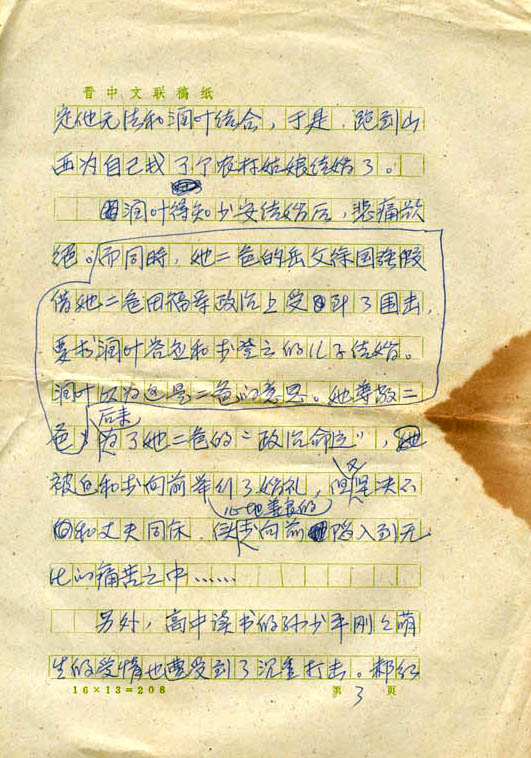 晋中文联稿纸
定他无法和润叶结合，于是，跑到山
西为自己找了个农村姑娘结婚了。
润叶得知少安结婚后，悲痛欲
绝。而同时，她二爸的岳父徐国强假
借她二爸田福军政治上受到了围击，
要求润叶答应和李登云的儿子结婚。
润叶以为这是二爸的意思。她尊敬二
后来
爸，为了她二爸的“政治命运”，
被迫和李向前举行了婚礼，但又是决不
心地善良的
和丈夫同床，使李向前陷入到无
比的痛苦之中……
另外，高中读书的孙少平刚刚萌
生的爱情也遭受到了沉重打击。郝红
16×13=208 第3页